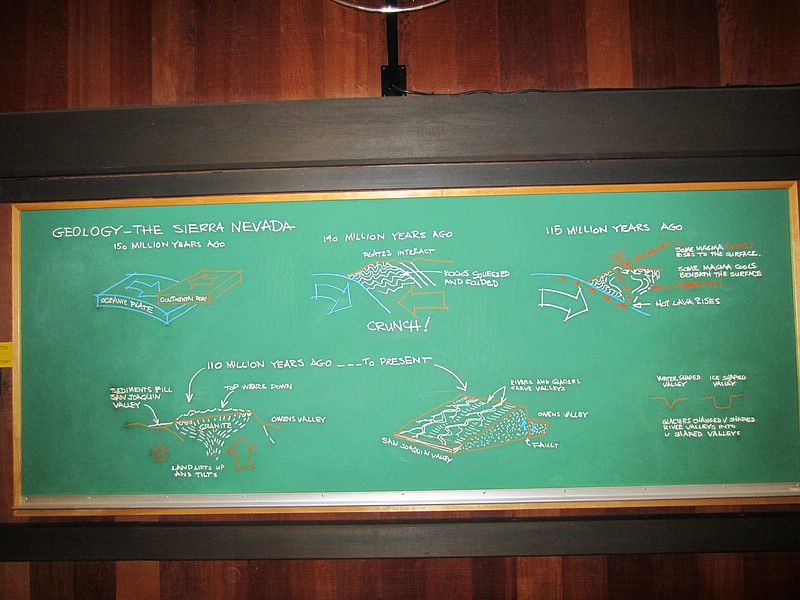 GEOLOGY-THE SIERRA NEVADA
150 MILLION YEARS AGO
OCEANIC PLATE
CONTINENTAL PLATE
140 MILLION YEARS AGO
PLATES INTERACT
ROCKS SQUEEZED
AND FOLDED
CRUNCH!
115 MILLION YEARS AGO
SOME MAGMA
RISES TO THE SURFACE.
SOME MAGMA COOLS
BENEATH THE SURFACE
HOT LAVA RISES
110 MILLION YEARS AGO ---TO PRESENT
SEDIMENTS FILL
SAN JOAQUIN
VALLEY
TOP WEARS DOWN
GRANITE
OWENS VALLEY
LAND LIFTS UP
AND TILTS
RIVERS AND GLACIERS
CARVE VALLEYS
OWENS VALLEY
FAULT
SAN JOAQUIN VALLEY
WATER SHAPED
VALLEY
ICE SHAPED
VALLEY
GLACIERS CHANGED V SHAPED
RIVER VALLEYS INTO
U SHAPED VALLEYS